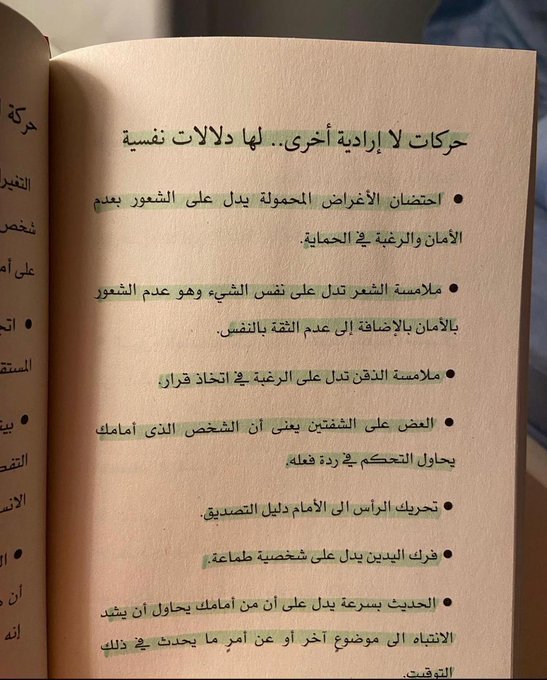 حركات لا إرادية أخرى.. لها دلالات نفسية
● احتضان الأغراض المحمولة يدل على الشعور بعدم
الأمان والرغبة في الحماية.
● ملامسة الشعر تدل على نفس الشيء وهو عدم الشعور
بالأمان بالإضافة إلى عدم الثقة بالنفس.
● ملامسة الذقن تدل على الرغبة في اتخاذ قرار.
● العض على الشفتين يعنى أن الشخص الذى أمامك
يحاول التحكم في ردة فعله.
● تحريك الرأس الى الأمام دليل التصديق.
● فرك اليدين يدل على شخصية طماعة.
● الحديث بسرعة يدل على أن من أمامك يحاول أن يشد
الانتباه الى موضوعٍ آخر أو عن أمرٍ ما يحدث في ذلك
التوقيت.
حركة
شخص
على
●
●
●
أن
إنه